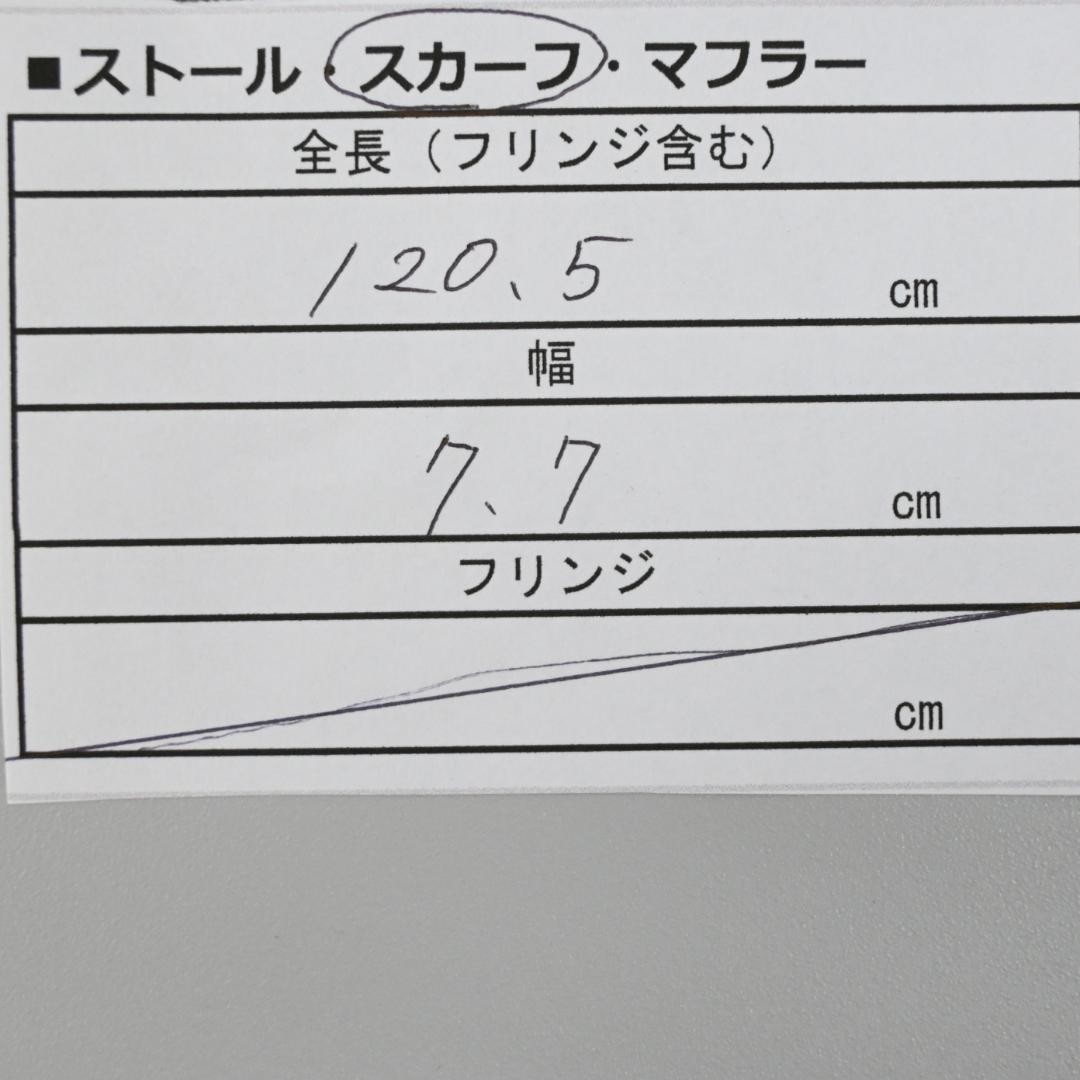 ■ストール・スカーフ・マフラー
全長（フリンジ含む）
120.5 cm
幅
7.7 cm
フリンジ
cm